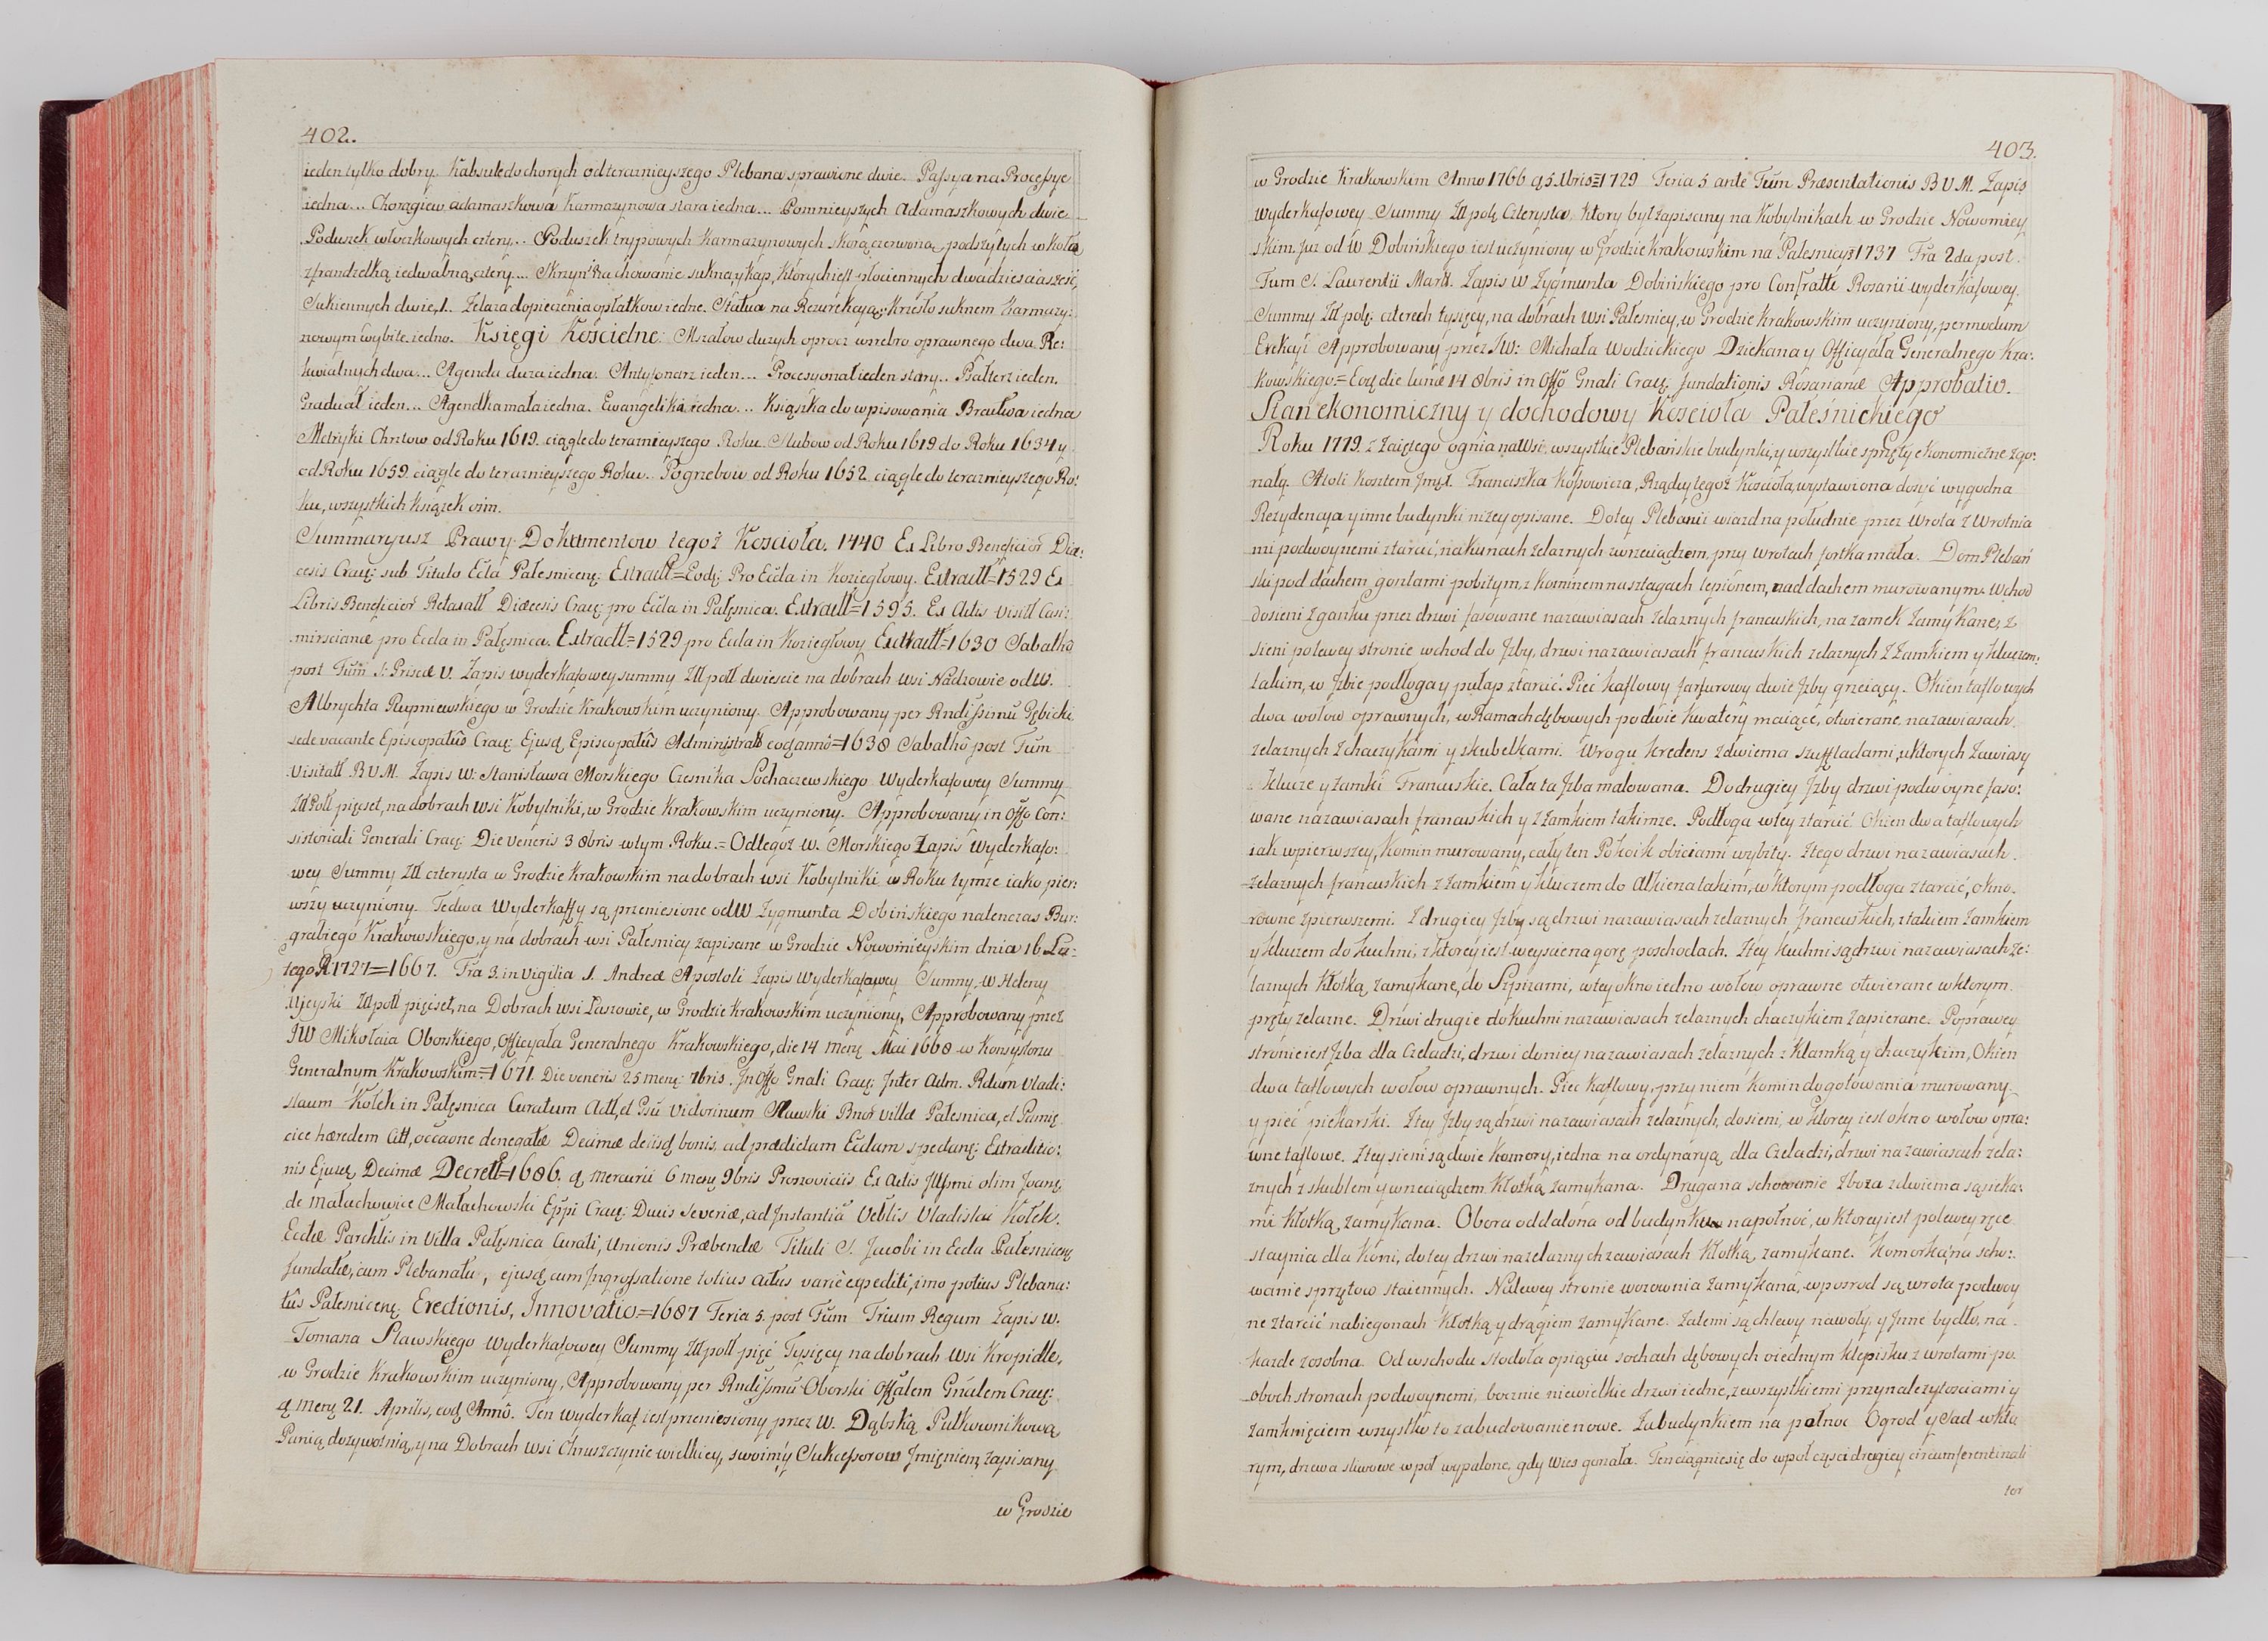 402.
ieden tylko dobry. Kabsuledochorych od teraznieyszego Plebana sprawione dwie. Passya na Processye
iedna... Chorągiew adamaszkowa Karmazynowa stara iedna... Pomnieyszych Adamaszkowych dwie
Poduszek włoczkowych cztery.. Poduszek trypowych karmazynowych skorą czerwoną podszytych w koła
z frandzelką iedwabną cztery... Skrzyń na chowanie sukna, y kap, ktorych iest płociennych dwadziescia szesć,
Sukiennych dwie, 1. Zelaza do pieczenia opłatkow iedne. Statua na Rezurekcyą: Krzesło suknem karmazy:
nowym wybite iedno. Księgi Kościelne: Mszałow duzych oprocz wsrebro oprawnego dwa. Re:
kwialnych dwa... Agenda duza iedna. Antyfonarz ieden... Procesyonał ieden stary.. Psałterz ieden.
Graduał ieden... Agendka mała iedna. Ewangeliká iedna... Ksiązka do wpisowania Bractwa iedna
Metryki Chrztow od Roku 1619. ciągle do teraznieyszego Roku. Slubow od Roku 1619 do Roku 1634 y
od Roku 1659. ciągle do teraznieyszego Roku. Pogrzebow od Roku 1652 ciągle do teraznieyszego Ro:
ku, wszystkich Ksiązek osm.
Summaryusz Praw y Dokumentow tegoż Koscioła. 1440 Ex Libro Beneficior Diæ:
cesis Crac: sub Titulo Ecla Pałesnicen: Extractt = Eod: Pro Ecla in Koziegłowy. Extractt = 1529 Ex
Libris Beneficior Retaxatt Diæcesis Crac: pro Ecla in Pałęsnica. Extractt = 1595. Ex Actis visitt Casi:
mirscianæ pro Ecla in Pałęsnica. Extractt = 1529 pro Ecla in Koziegłowy Extractt = 1630 Sabatho
post Fūm S: Priscæ V. Zapis wyderkafowey summy Zll poll dwiescie na dobrach wsi Nadzowie od W.
Albrychta Rupniewskiego w Grodzie Krakowskim uczyniony. Approbowany per Rndissimū Gębicki
sede vacante Episcopatûs Crac: Ejusq Episcopatûs Administratt eod annô = 1638 Sabathô post Fūm
Visitatt B V M. Zapis W: Stanisława Morskiego Czesnika Sochaczewskiego Wyderkafowey Summy
Zll Poll pięset, na dobrach wsi Kobylniki, w Grodzie Krakowskim uczyniony. Approbowany in Offo Con:
sistoriali Generali Crac: Die Veneris 3 8bris w tym Roku. = Od tegoz W. Morskiego Zapis Wyderkafo:
wey Summy Zll czterysta w Grodzie Krakowskim na dobrach wsi Kobylniki w Roku tymze iako pier:
wszy uczyniony. Te dwa Wyderkaffy są przeniesione od W Zygmunta Dobińskiego nalenczas Bur:
grabiego Krakowskiego, y na dobrach wsi Pałesnicy zapisane w Grodzie Nowomieyskim dnia 16 Lu:
tego R: 1727 = 1667. Fra 3. in Vigilia S. Andreæ Apostoli Zapis Wyderkafowey Summy, W Heleny
Ujeyski Zll poll pięiset, na Dobrach wsi Łaszowie, w Grodzie Krakowskim uczyniony, Approbowany przez
JW Mikołaia Oborskiego, Officyała Generalnego Krakowskiego, die 14 mens Mai 1668 w Konsystorzu
Generalnym Krakowskim = 1671. Die veneris 25 mens: 7bris. In Offo Gnali Crac: Inter Adm. Rdum Vladi:
slaum Kołek in Pałęsnica Curatum Actt, et Gsū Victorinum Sławski Bnor villæ Pałesnica, et Pamię
cice hæredem Citt, occaone denegatæ Decimæ de iisq bonis, ad prædictam Eclam spectanę: Extraditio:
nis Ejusq Decimæ Decrett = 1686. q mercurii 6 mens 9bris Proszoviciis Ex Actis Jllsmi olim Joanę
de Małachowice Małachowski Eppi Crac: Ducis Severiæ, ad Instantiā Veblis Vladislai Kołek.
Ecclæ Parchlis in Villa Pałęsnica Curati, Unionis Præbendæ Tituli S. Jacobi in Ecla Pałesnicenę
fundatæ, cum Plebanatu, ejusq cum Ingrossatione totius actus variè expediti, imo potius Plebana:
tûs Pałesnicenę: Erectionis, Innovatio = 1687 Feria 5. post Fūm Trium Regum Zapis W.
Tomasza Sławskiego Wyderkafowey Summy Zll poll pięć Tysięcy na dobrach wsi Kropidle,
w Grodzie Krakowskim uczyniony, Approbowany per Rndissmū Oborski Offalem Gnalem Crac:
q mens 21. Aprilis, eoq Annô. Ten wyderkaf iest przeniesiony przez W. Dąbską Pułkownikową
Panią dozywotnią, y na Dobrach wsi Chruszczynie wielkiey, swoim y Sukcessorow Jmięniem zapisany
w Grodzie
403.
w Grodzie Krakowskim Anno 1766 q 5. Xbris = 1729 Feria 5 ante Fūm Præsentationis B V M. Zapis
wyderkafowey Summy Zll polę Czterysta, ktory był zapisany na Kobylnikach w Grodzie Nowomiey
skim. Juz od W Dobińskiego iest uczyniony w Grodzie Krakowskim na Pałesnicy = 1737 Fra 2da post.
Fum S. Laurentii Martt. Zapis W Zygmunta Dobińskiego pro Confratte Rosarii wyderkafowey.
Summy Zll polę: czterech tysięcy, na dobrach wsi Pałesnicy, w Grodzie Krakowskim uczyniony, per modum
Erekcyi Approbowany przez JW: Michała Wodzickiego Dziekana y Officyała Generalnego Kra:
kowskiego = Eoq die lunæ 14 8bris in Offo Gnali Crac: fundationis Rosarianæ Approbatio.
Stan ekonomiczny y dochodowy Koscioła Pałeśnickiego
Roku 1779. z zaiętego ognia na Wsi, wszystkie Plebańskie budynki, y wszystkie sprzęty ekonomiczne zgo:
rzały. Atoli Kosztem Jmsł. Franciszka Kossowicza, Rządcy tegoż Koscioła, wystawiona dosyć wygodna
Rezydencya y inne budynki nizey opisane. Do tey Plebanii wiazd na południe przez Wrota z Wrotnia
mi podwoynemi z tarcić, na kunach zelaznych z wrzeciądzem, przy wrotach fortka mała. Dom Plebań
ski pod dachem gontami pobitym, z kominem na sztagach lepionem, nad dachem murowanym. Wchod
do sieni z ganku przez drzwi fasowane na zawiasach zelaznych francuskich, na zamek zamykane, z
sieni po lewey stronie wchod do Jzby, drzwi na zawiasach francuskich zelaznych z Zamkiem y kluczem
takim, w Jzbie podłoga y pułap z tarcić. Piec kaflowy farfurowy dwie Jzby grzeiący. Okien taflowych
dwa w ołow oprawnych, w Ramach dębowych po dwie kwatery maiące, otwierane na zawiasach
zelaznych z haczykami y skubelkami. W rogu Kredens z dwiema szuffladami, u ktorych Zawiasy
Klucze y Zamki Francuskie. Cała ta Jzba malowana. Do drugiey Jzby drzwi podwoyne faso:
wane na zawiasach francuskich y z Zamkiem takimze. Podłoga w tey z tarcić. Okien dwa taflowych
iak w pierwszey, Komin murowany, cały ten Pokoik obiciami wybity. Z tego drzwi na zawiasach
zelaznych francuskich z Zamkiem y kluczem do Alkierza takim, w ktorym podłoga z tarcić, okno
rowne z pierwszemi. Z drugiey Jzby są drzwi na zawiasach zelaznych francuskich, z takiem Zamkiem
y kluczem do kuchni, z ktorey iest weyscie na gorę po schodach. Z tey kuchni są drzwi na zawiasach ze:
laznych Kłotką zamykane, do Szpizarni, w tey okno iedno w ołow oprawne otwierane w ktorym
pręty zelazne. Drzwi drugie do kuchni na zawiasach zelaznych chaczykiem zapierane. Po prawey
stronie iest Jzba dla Czeladzi, drzwi do niey na zawiasach zelaznych z Klamką y chaczykiem, Okien
dwa taflowych w ołow oprawnych. Piec Kaflowy, przy niem Komin do gotowania murowany
y piec piekarski. Z tey Jzby są drzwi na zawiasach zelaznych, do sieni, w ktorey iest okno w ołow opra:
wne taflowe. Z tey sieni są dwie Komory, iedna na ordynaryą dla Czeladzi, drzwi na zawiasach zela:
znych z skublem y wrzeciądzem Kłotką zamykana. Druga na schowanie Zboza z dwiema sąsieka:
mi Kłotką zamykana. Obora oddalona od budynku na połnoć, w ktorey iest po lewey ręce
staynia dla Koni, do tey drzwi na zelaznych zawiasach Kłotką zamykane. Komorka na scho:
wanie sprzętow staiennych. Na lewey stronie wozownia zamykana, w posrod są wrota podwoy
ne z tarcić na biegonach Kłotką y drągiem zamykane. Za temi są chlewy na woły, y Jnne bydło, na
kazde zosobna. Od wschodu stodoła o piąciu sochach dębowych o iednym klepisku z wrotami po
oboch stronach podwoynemi, bocznie niewielkie drzwi iedne, ze wszystkiemi przynalezytosciami y
zamknięciem wszystko to zabudowanie nowe. Za budynkiem na połnoc Ogrod y Sad w kto
rym, drzewa sliwowe w poł wypalone, gdy Wies gorzała. Ten ciągnie się do w poł częsci drugiey circumferentinali